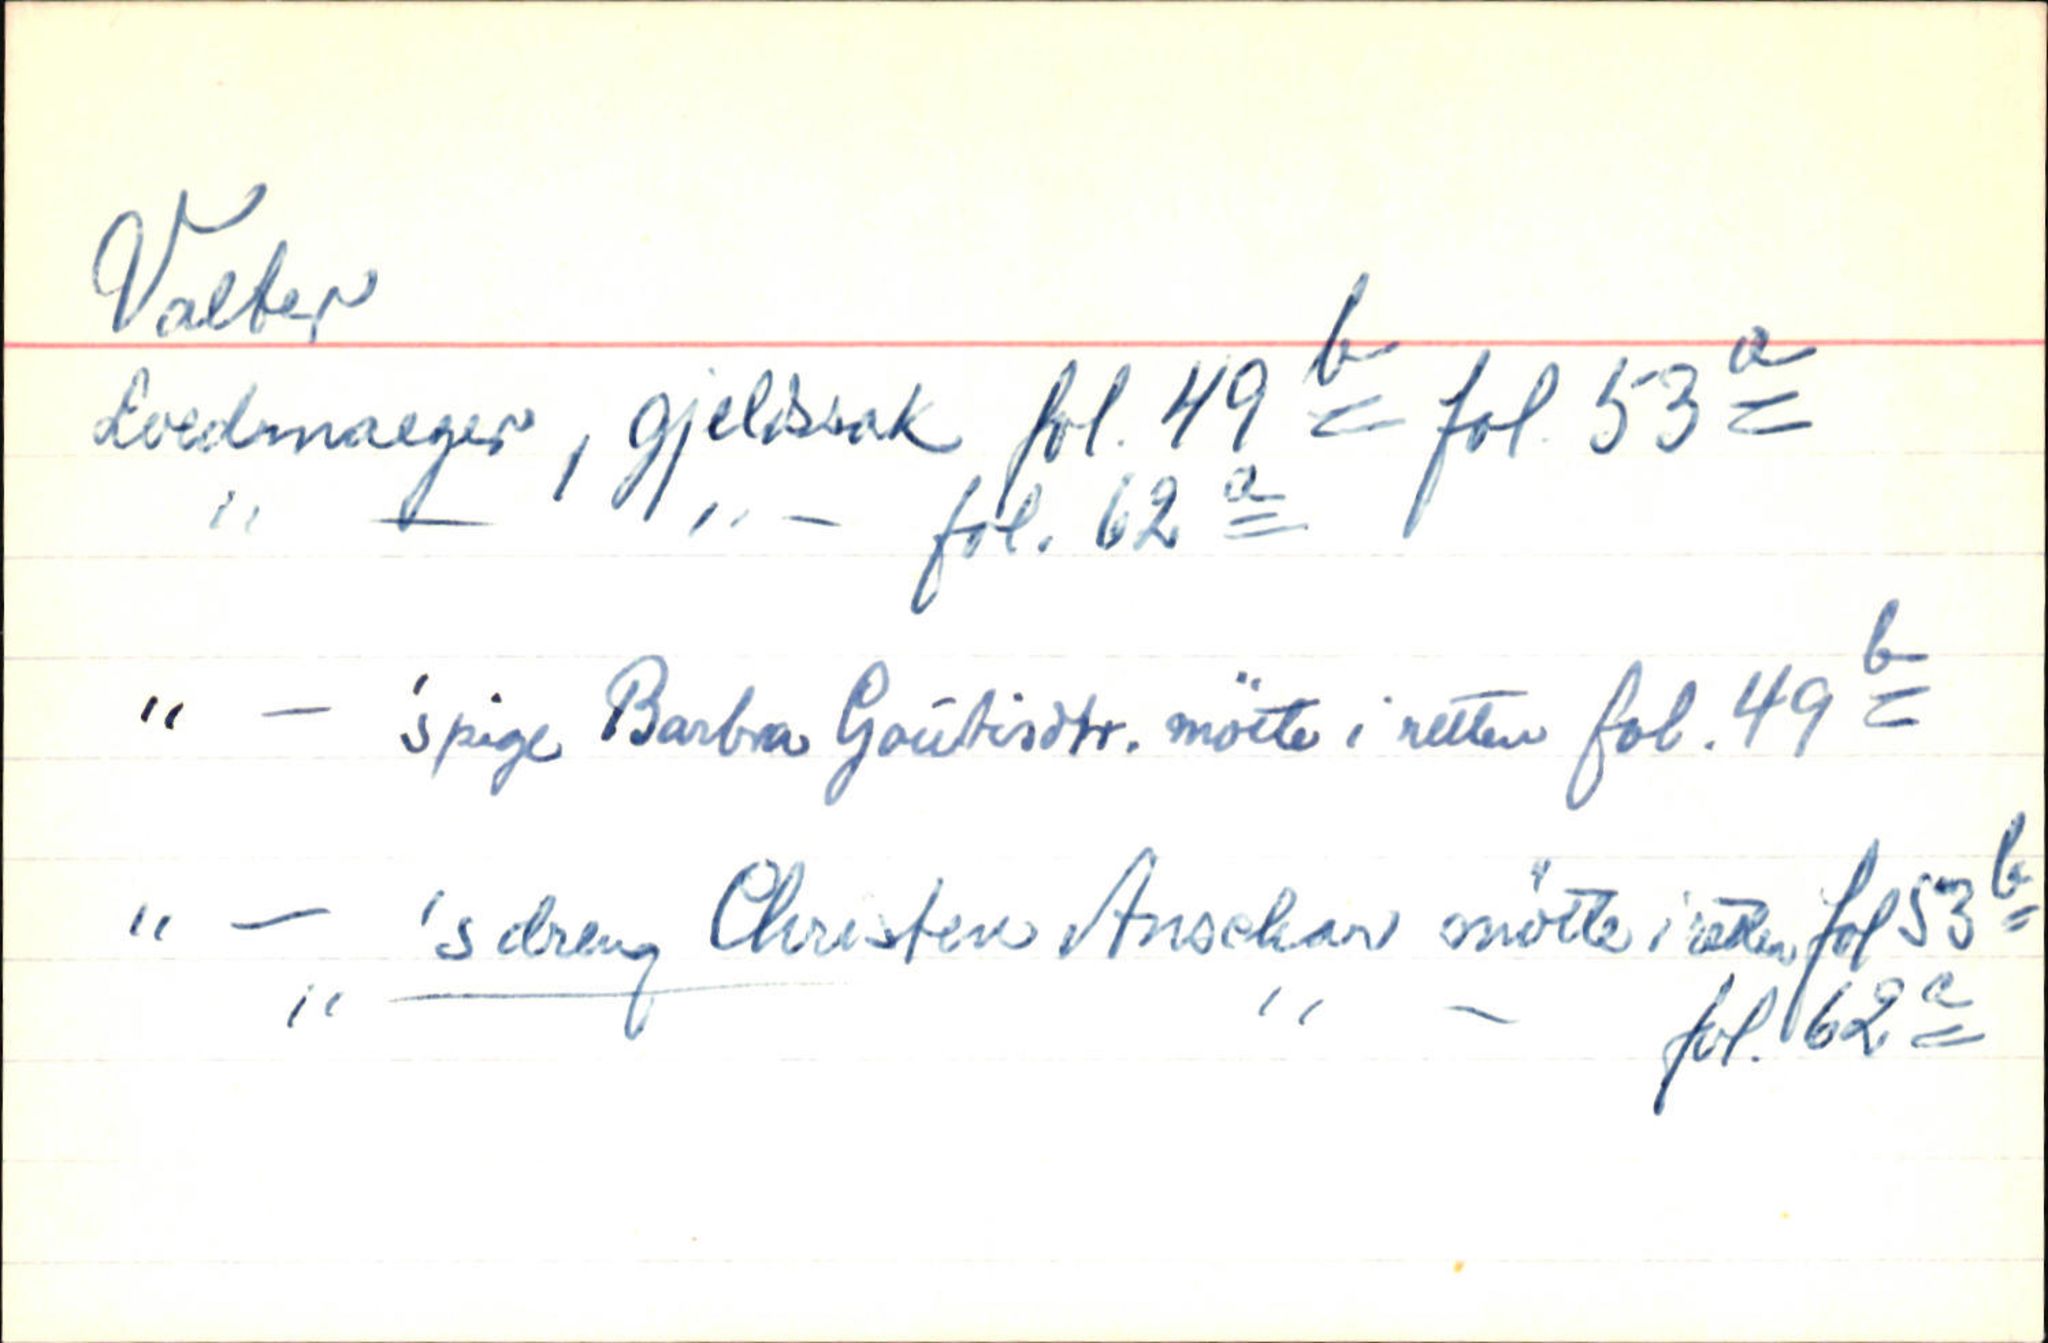 Valter
Loedmaeger, gjeldssak fol. 49 b fol. 53 a
" — " — fol. 62 a
" — 's pige Barba Goutisdtr. mötte i retten fol. 49 b
" — 's dreng Christen Anschar mötte i retten fol 53 b
" — " — fol. 62 a